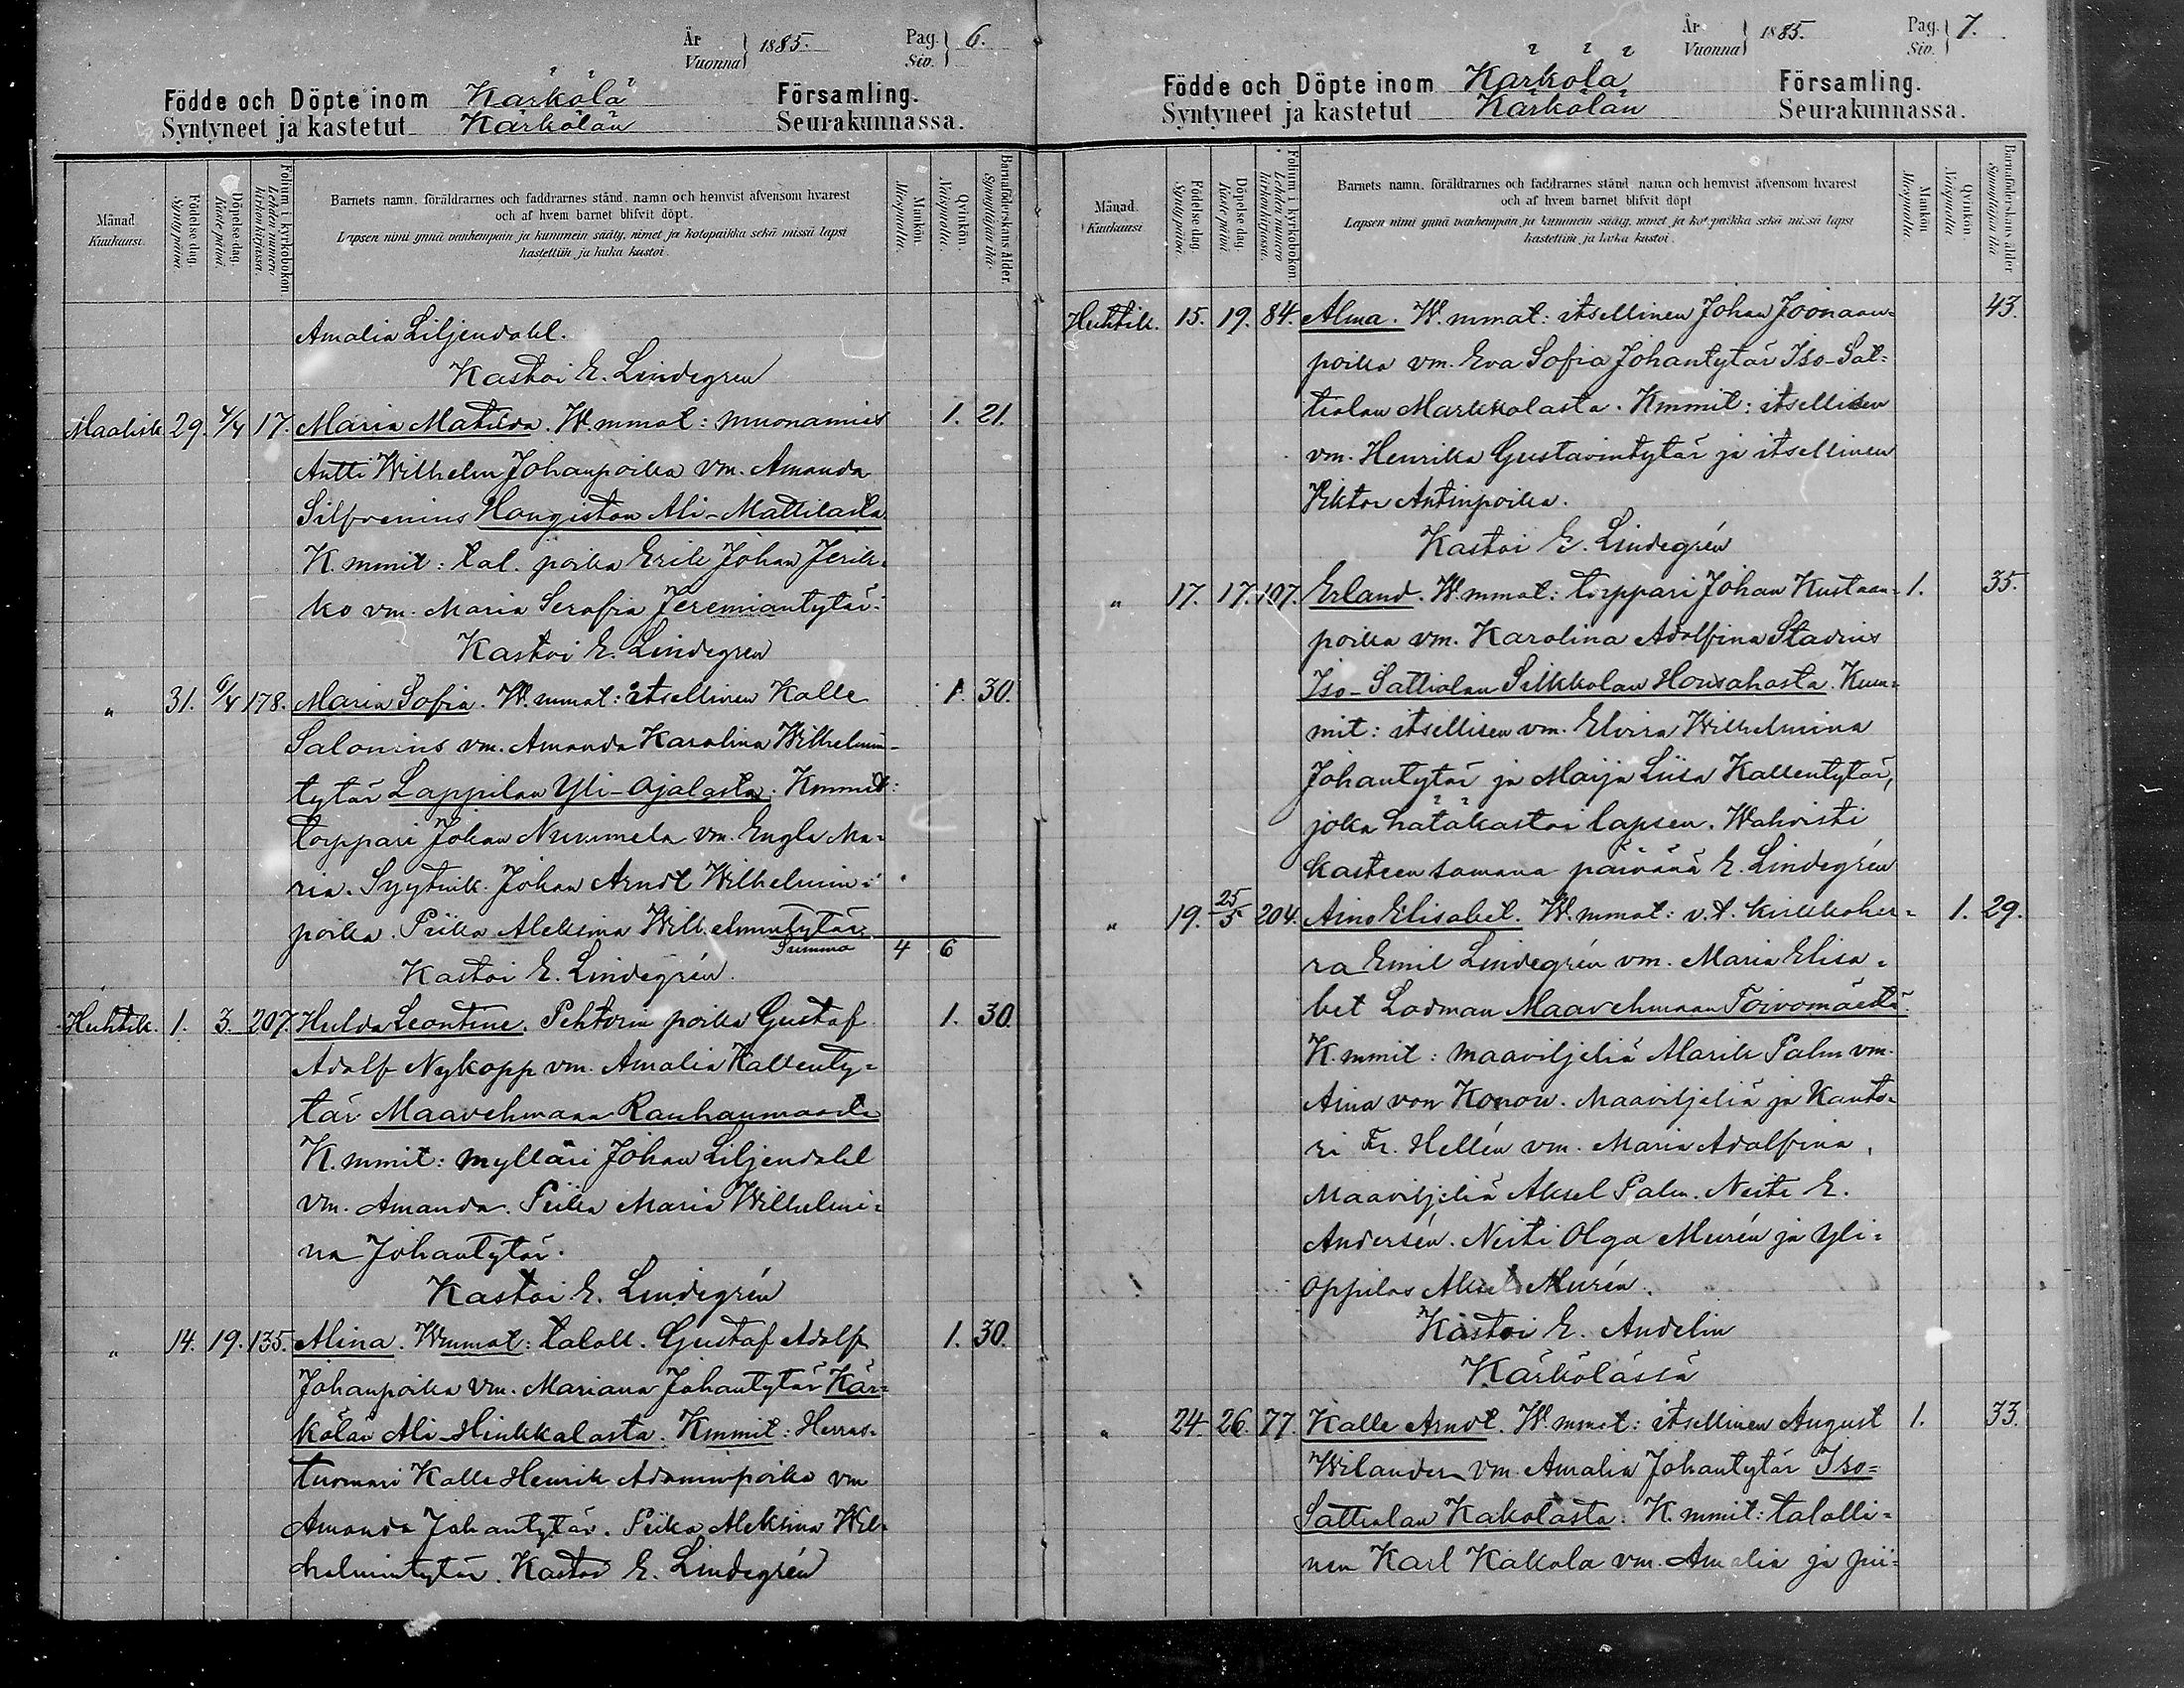 År
Vuonna } 1885. Pag.
Siv. } 6.
Födde och Döpte inom Kärkölä Församling.
Syntyneet ja kastetut Kärkölän Seurakunnassa.
Månad.
Kuukausi.
Födelse dag.
Synty päivä.
Döpelse dag.
Kaste päivä.
Folium i kyrkoboken.
Lehden numero kirkonkirjassa.
Barnets namn, föräldrarnes och faddrarnes stånd, namn och hemvist äfvensom hvarest
och af hvem barnet blifvit döpt.
Lapsen nimi ynnä vanhempain ja kummein sääty, nimet ja kotopaikka sekä missä lapsi
kastettiin ja kuka kastoi.
Mankön.
Miespuolia.
Qvinkön.
Naispuolia.
Barnaföderskans ålder.
Synnyttäjän ikä.
Amalia Liljendahl.
Kastoi E. Lindegren
Maalisk. 29. 4/4 17. Maria Matilda. W.mmat: muonamies 1. 21.
Antti Wilhelm Johanpoika vm. Amanda
Silfvenius Hongiston Ali-Mattilasta
K.mmit: tal. poika Erik Johan Jerik-
ko vm. Maria Serafia Jeremiantytär.
Kastoi E. Lindegren
" 31. 6/4 178. Maria Sofia. W.mmat: itsellinen Kalle 1. 30.
Salonius vm. Amanda Karolina Wilhelmin-
tytär Lappilan Yli-Ajalasta. Kmmit:
torppari Johan Nummela vm. Engla Ma-
ria. Syytink. Johan Arndt Wilhelmin-
poika. Piika Aleksina Wilhelmintytär.
Summa 4 6
Kastoi E. Lindegrén.
Huhtik. 1. 3. 207. Hulda Leontine. Pehtorin poika Gustaf 1. 30.
Adolf Nykopp vm. Amalia Kallenty-
tär Maavehmaan Rauhanmaasta
K.mmit: mylläri Johan Liljendahl
vm. Amanda. Piika Maria Wilhelmi-
na Johantytär.
Kastoi E. Lindegrén
" 14. 19. 135. Alina. Wmmat: taloll. Gustaf Adolf 1. 30.
Johanpoika vm. Mariana Johantytär Kär-
kölän Ali-Hinkkalasta. Kmmit: Herras-
tuomari Kalle Henrik Adaminpoika vm
Amanda Johantytär. Piika Aleksina Wil-
helmintytär. Kastoi E. Lindegrén
År
Vuonna } 1885. Pag.
Siv. } 7.
Födde och Döpte inom Kärkölä Församling.
Syntyneet ja kastetut Kärkölän Seurakunnassa.
Månad.
Kuukausi
Födelse dag.
Synty päivä.
Döpelse dag.
Kaste päivä.
Folium i kyrkoboken.
Lehden numero kirkonkirjassa.
Barnets namn, föräldrarnes och faddrarnes stånd, namn och hemvist äfvensom hvarest
och af hvem barnet blifvit döpt
Lapsen nimi ynnä vanhempain ja kummein sääty, nimet ja kotopaikka sekä missä lapsi
kastettiin ja kuka kastoi.
Mankön.
Miespuolia.
Qvinkön.
Naispuolia.
Barnaföderskans ålder
Synnyttäjän ikä
Huhtik. 15. 19. 84. Alma. W.mmat: itsellinen Johan Joonaan- 43.
poika vm. Eva Sofia Johantytär Iso-Sat-
tialan Markkolasta. Kmmit: itsellisen
vm. Henrika Gustavintytär ja itsellinen
Viktor Antinpoika.
Kastoi E. Lindegrén
" 17. 17. 107. Erland. W.mmat: torppari Johan Kustaan- 1. 35.
poika vm. Karolina Adolfina Stadius
Iso-Sattialan Silkkolan Honsahosta. Kum-
mit: itsellisen vm. Elvira Wilhelmina
Johantytär ja Maija Liisa Kallentytär,
joka hätäkastoi lapsen. Wahvisti
kasteen samana päivänä E. Lindegrén
" 19. 25/5 204. Aino Elisabet. W.mmat: v.t. kirkkoher- 1. 29.
ra Emil Lindegrén vm. Maria Elisa-
bet Ladman Maavehmaan Toivomäestä.
K.mmit: maaviljeliä Marik Palm vm.
Aina von Konow. Maaviljeliä ja Kantto-
ri Fr. Hellén vm. Maria Adolfina,
Maaviljeliä Aksel Palm. Neiti E.
Andersén. Neiti Olga Murén ja yli-
oppilas Aksel Murén.
Kastoi E. Andelin
Kärkölässä
" 24. 26. 77. Kalle Arndt. W.mmat: itsellinen August 1. 33.
Wilander vm. Amalia Johantytär Iso-
Sattialan Kakolasta. K.mmit: talolli-
nen Karl Kakola vm. Amalia ja pii-